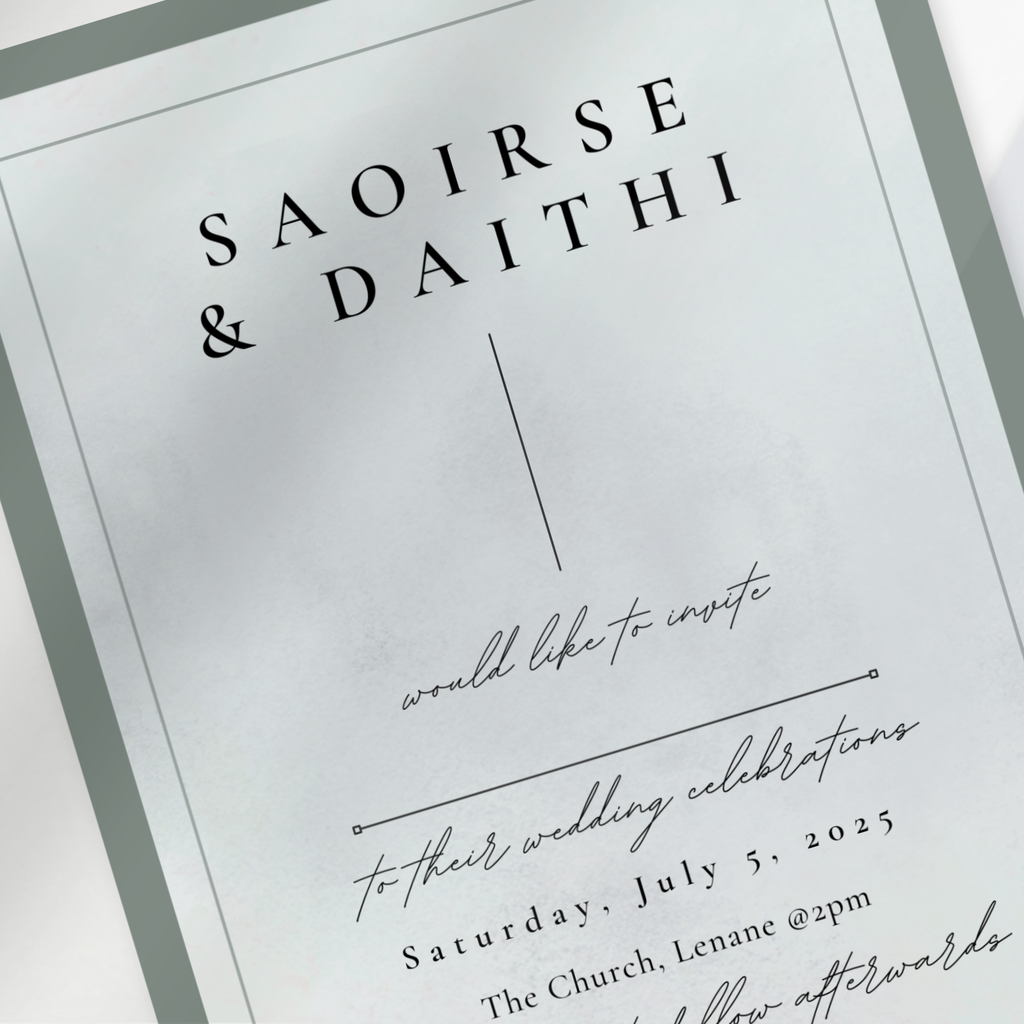 SAOIRSE
& DAITHI
would like to invite
to their wedding celebrations
Saturday, July 5, 2025
The Church, Lenane @2pm
follow afterwards